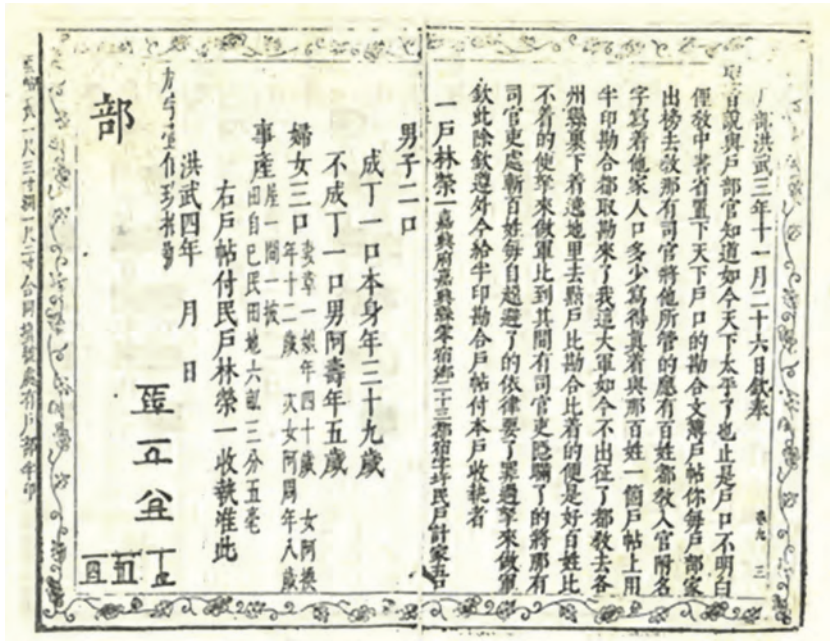 部洪武三年十一月二十六日欽奉
卷九 三
聖旨說與戶部官知道如今天下太平了也止是戶口不明白
俚教中書省置下天下戶口的勘合文簿戶帖你每戶部家
出榜去教那有司官將他所管的應有百姓都教入官附名
字寫着他家人口多少寫得真着與那百姓一個戶帖上用
半印勘合都取勘來了我這大軍如今不出征了都教去各
州縣裏下着遶地里去點戶比勘合比着的便是好百姓比
不着的便拏來做軍比到其間有司官吏隱瞞了的將那有
司官吏處斬百姓每自趓避了的依律要了罪過拏來做軍
欽此除欽遵外今給半印勘合戶帖付本戶收執者
一戶林榮一嘉興府嘉興縣零宿鄉二十三都宿字圩民戶計家五口
男子二口
成丁一口本身年三十九歲
不成丁一口男阿壽年五歲
婦女三口
妻章一娘年四十歲 女阿換
年十二歲 次女阿周年八歲
事產
屋一間一披
田自己民田地六畝三分五毫
右戶帖付民戶林榮一收執准此
洪武四年 月 日
部